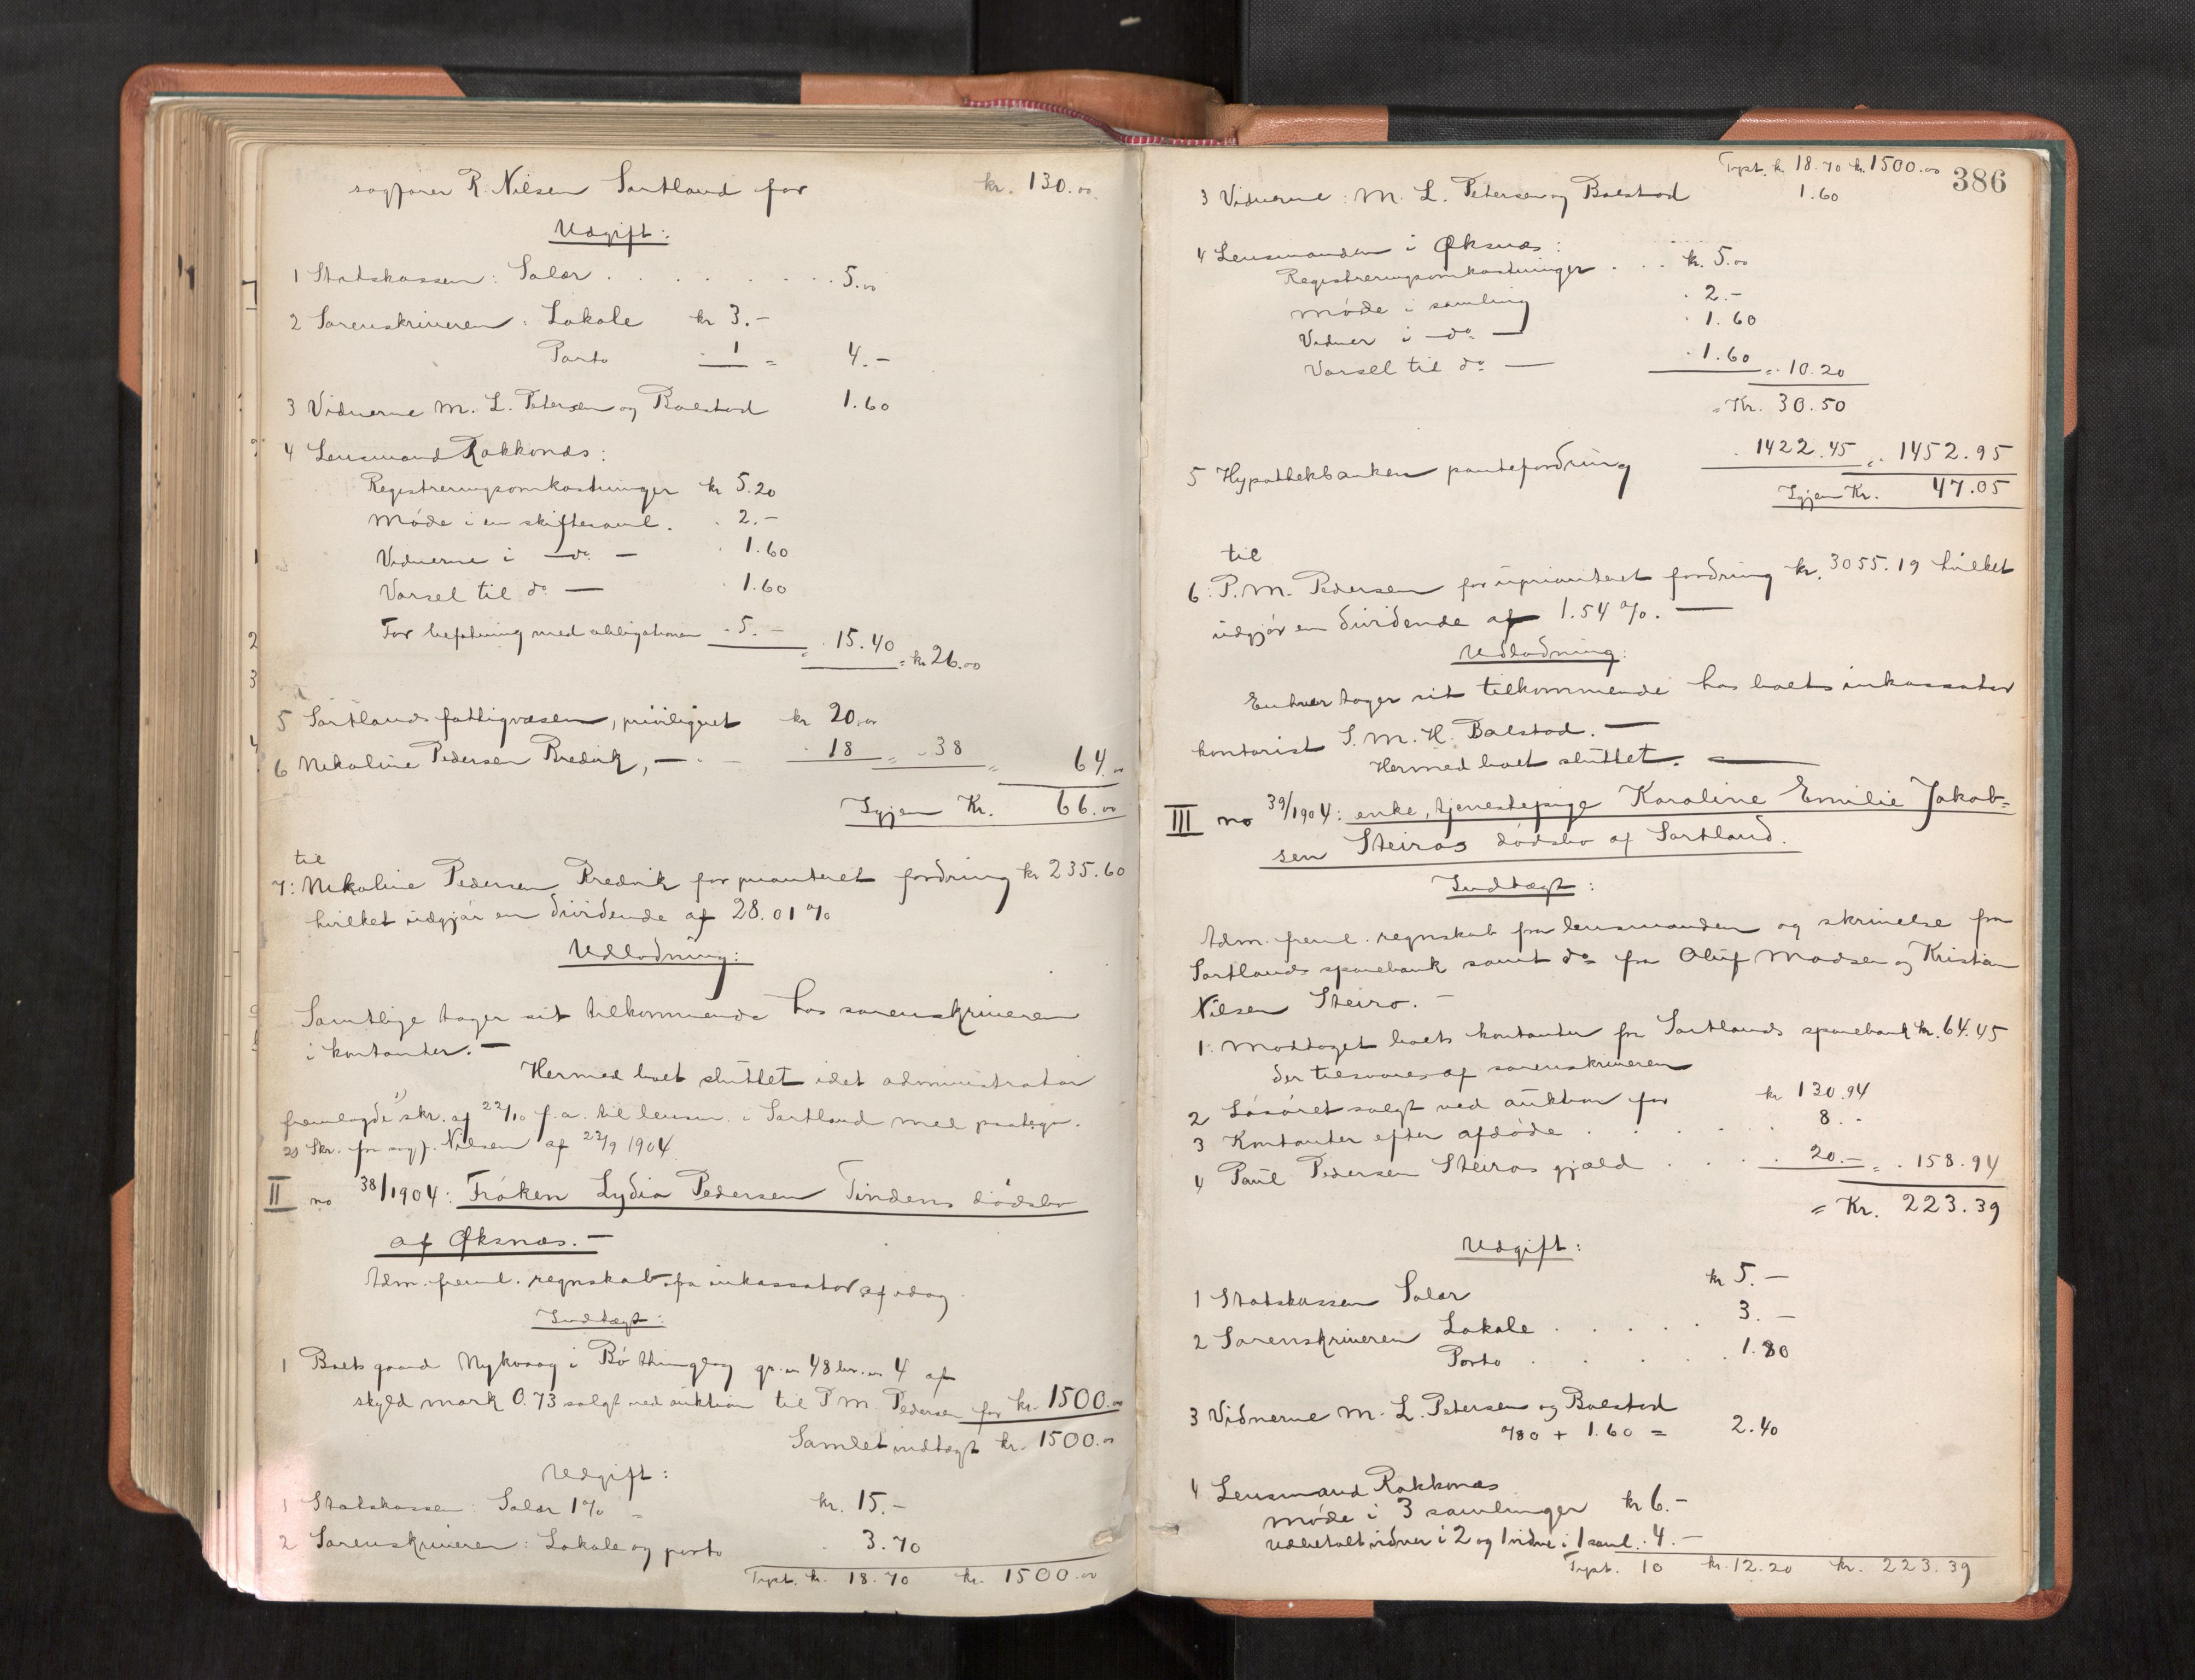 sagfører R. Nilsen Sortland for kr. 130.00
Udgift:
1 Statskassen: Salær . . . . . . . . 5.00
2 Sorenskriveren: Lokale kr 3.-
Porto . 1 = 4.-
3 Vidnerne M. L. Petersen og Balstad 1.60
4 Lensmand Rakkenæs:
Registreringsomkostninger kr 5.20
Møde i en skiftesaml. . 2.-
Vidnerne i - do - . 1.60
Varsel til do - . 1.60
For befatning med obligationen . 5.- = . 15.40 = kr. 26.00
5 Sortlands fattigvæsen, privilegeret kr 20.00
6 Nikoline Pedersen Bredvik, - . - . 18 = . 38 = 64.00
Igjen Kr. 66.00
til
7: Nikoline Pedersen Bredvik for prioriteret fordring kr 235.60
hvilket udgjør en dividende af 28.01 %
Udlodning:
Samtlige tager sit tilkommende hos sorenskriveren
i kontanter. -
Hermed boet sluttet idet administrator
fremlagde 1) skr. af 22/10 f.a. til lensm. i Sortland med paategn.
2) Skr. fra sagf. Nilsen af 22/9 1904.
II no 38/1904: Frøken Lydia Pedersen Tindens dødsbo
af Øksnæs. -
Adm. freml. regnskab fra inkassator af idag.
Indtægt:
1 Boets gaard Nykvaag i Bø thinglag gr. no 48 br. no 4 af
skyld mark 0.73 solgt ved auktion til P M. Pedersen for kr. 1500.00
Samlet indtægt kr. 1500.00
Udgift:
1 Statskassen: Salær 1 % = kr. 15.-
2 Sorenskriveren: Lokale og porto . 3.70
Trpt. kr. 18.70 kr. 1500.00
386
Trpt. kr. 18.70 kr. 1500.00
3 Vidnerne: M. L. Petersen og Balstad 1.60
4 Lensmanden i Øksnæs:
Registreringsomkostninger . . . kr. 5.00
Møde i samling . 2.-
Vidner i - do - . 1.60
Varsel til do - . 1.60 = . 10.20
= Kr. 30.50
5 Hypothekbanken pantefordring . 1422.45 = . 1452.95
Igjen Kr. 47.05
til
6: P. M. Pedersen for uprioriteret fordring kr. 3055.19 hvilket
udgjør en dividende af 1.54 %. -
Udlodning:
Enhver tager sit tilkommende hos boets inkassator
kontorist S. M. H. Balstad. -
Hermed boet sluttet. -
III no 39/1904: enke, tjenestepige Karoline Emilie Jakob=
sen Steiros dødsbo af Sortland.
Indtægt:
Adm. freml. regnskab fra lensmanden og skrivelse fra
Sortlands sparebank samt do fra Oluf Madsen og Kristian
Nilsen Steiro. -
1. Modtaget boets kontanter fra Sortlands sparebank kr. 64.45
der tilsvares af sorenskriveren
2 Løsøret solgt ved auktion for kr 130.94
3 Kontanter efter afdøde . . . . . 8.-
4 Paul Pedersen Steiros gjæld . . . . 20.- = . 158.94
= Kr. 223.39
Udgift:
1 Statskassen Salær kr 5.-
2 Sorenskriveren Lokale . . . . . 3.-
Porto . . . . . 1.80
3 Vidnerne M. L. Petersen og Balstad
0/80 + 1.60 = 2.40
4 Lensmand Rakkenæs
Møde i 3 samlinger kr 6.-
Udbetalt vidner i 2 og 1 vidne i 1 saml. . 4.-
Trpt. 10 kr. 12.20 kr. 223.39